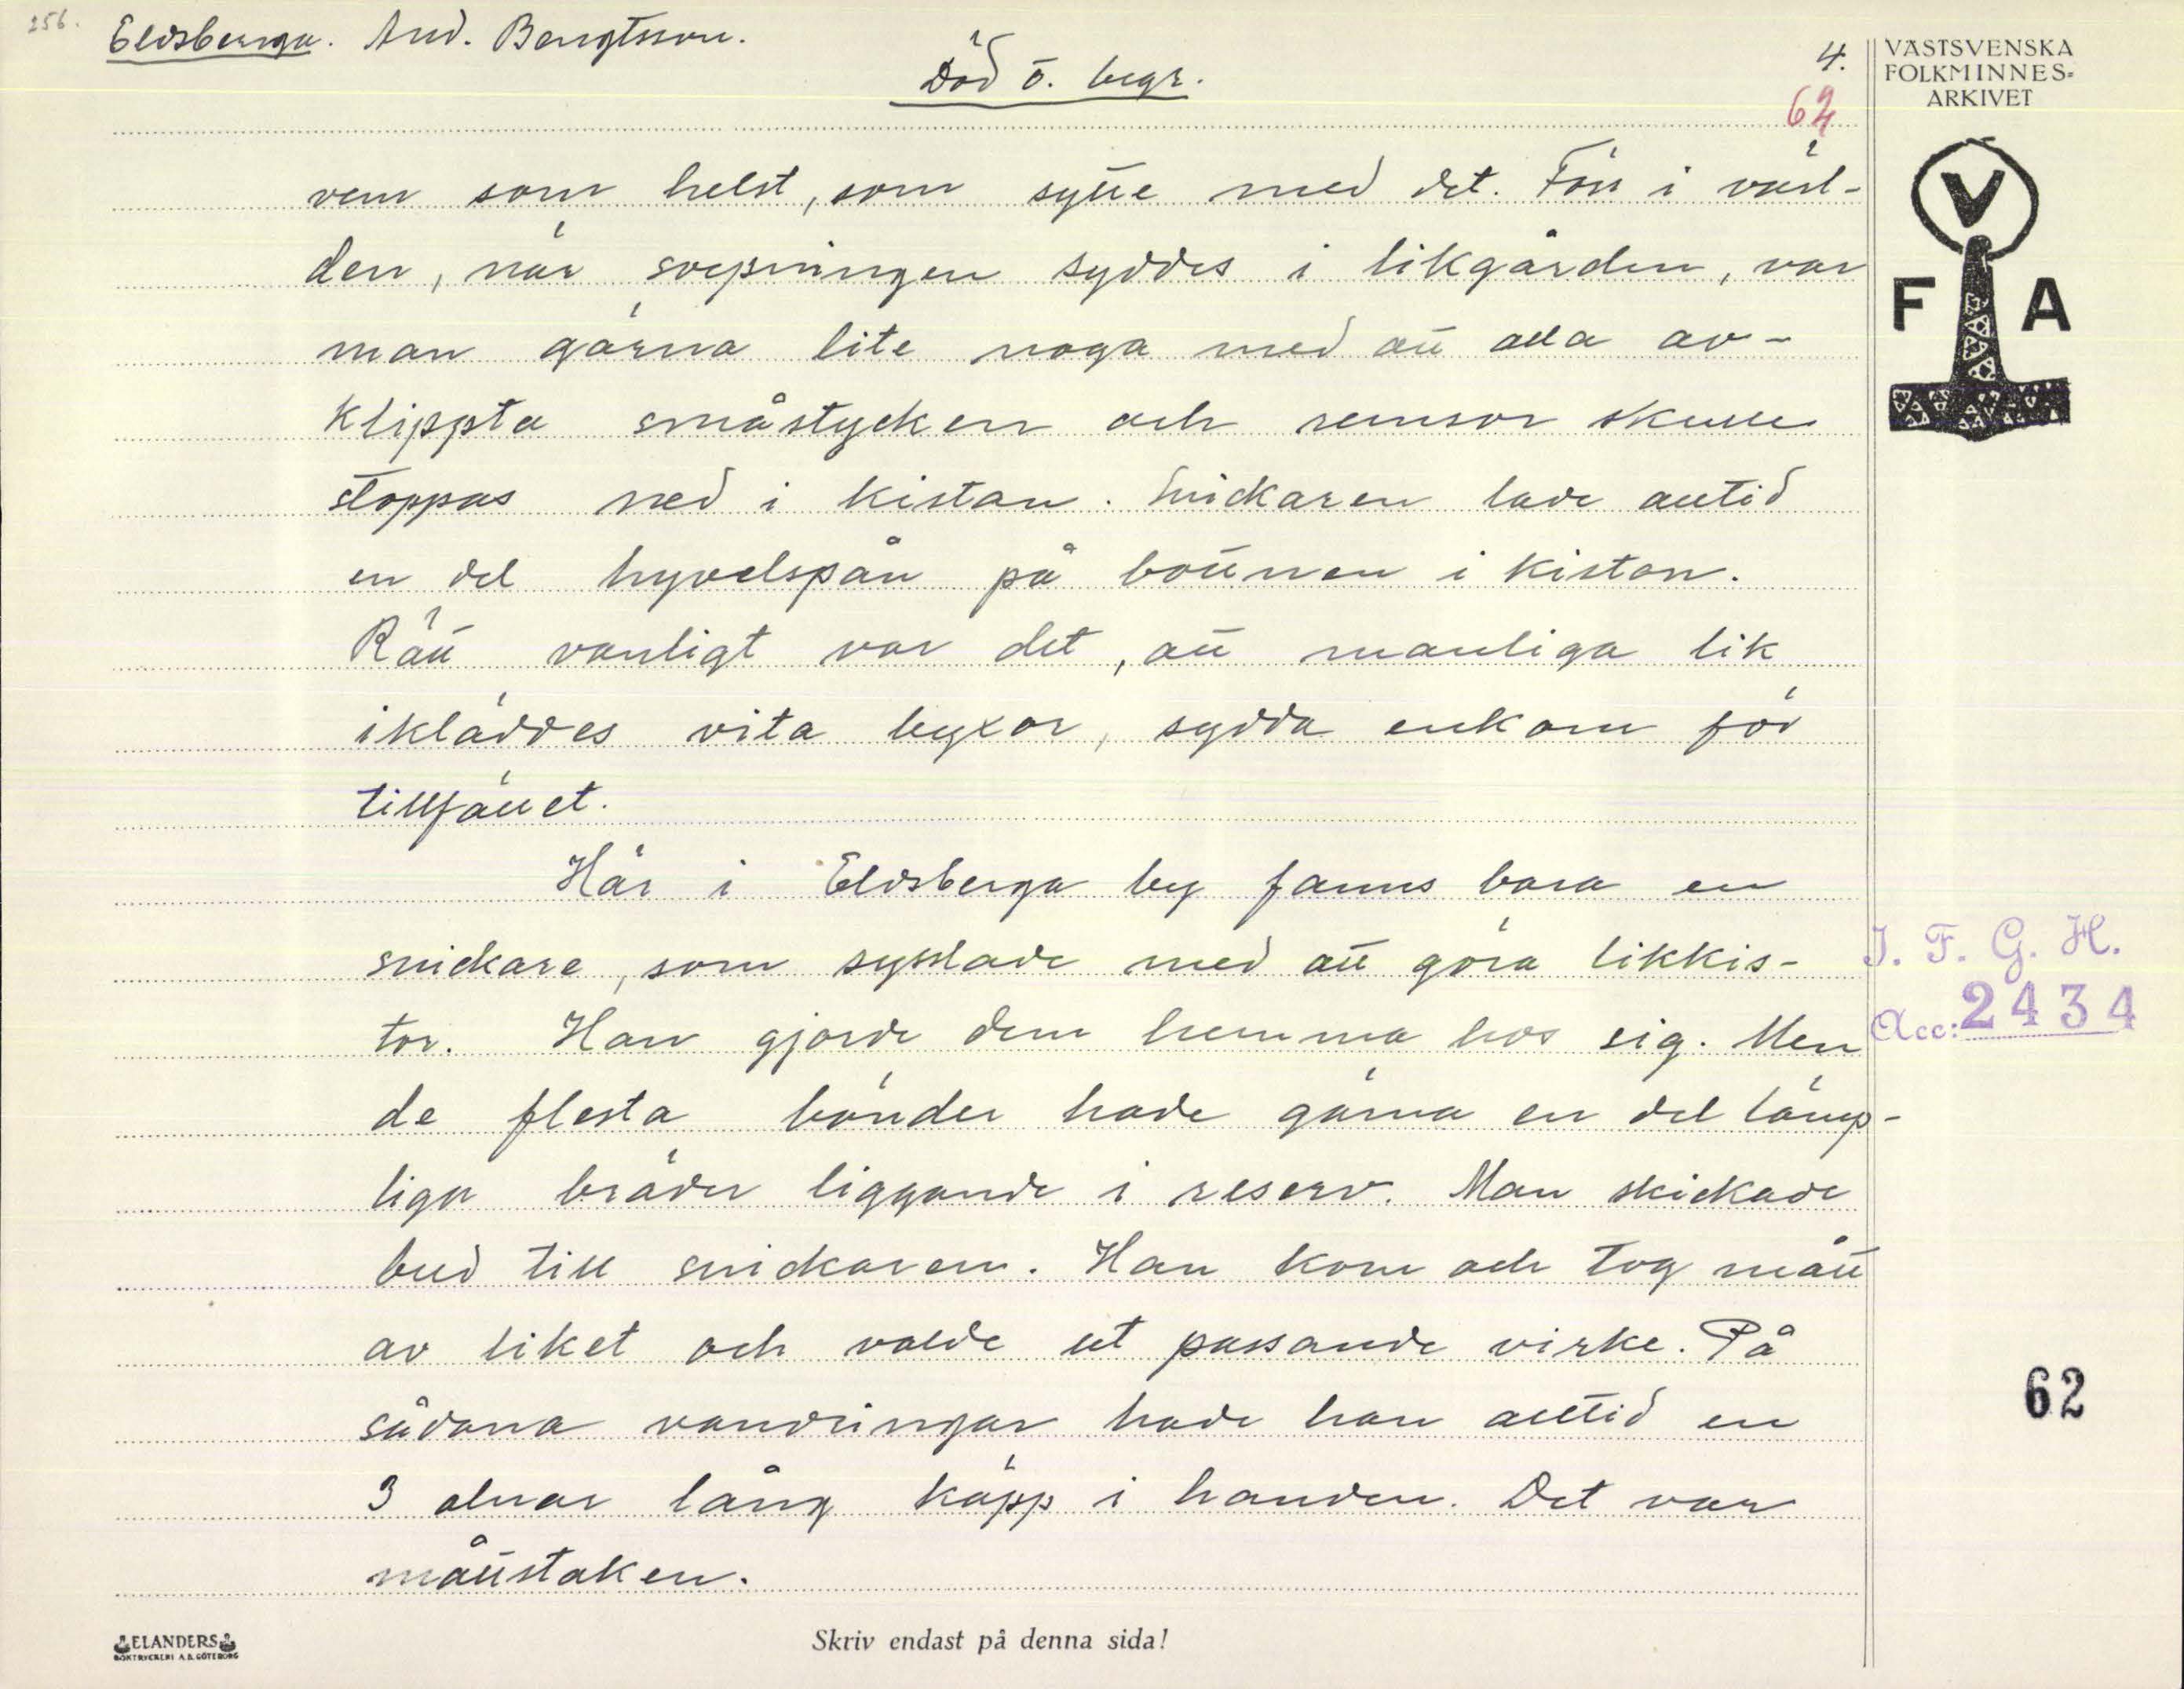 256.
Eldsberga. And. Bengtsson.
Död o. begr.
4.
62
VÄSTSVENSKA
FOLKMINNES-
ARKIVET
V
F A
vem som helst, som sytte med det. Förr i värl-
den, när svepningen syddes i likgården, var
man gärna lite noga med att alla av-
klippta småstycken och remsor skulle
stoppas ned i kistan. Snickaren lade alltid
en del hyvelspån på bottnen i kistan.
Rätt vanligt var det, att manliga lik
ikläddes vita byxor, sydda enkom för
tillfället.
Här i Eldsberga by fanns bara en
snickare, som sysslade med att göra likkis-
tor. Han gjorde dem hemma hos sig. Men
de flesta bönder hade gärna en del lämp-
liga bräder liggande i reserv. Man skickade
bud till snickaren. Han kom och tog mått
av liket och valde ut passande virke. På
sådana vandringar hade han alltid en
3 alnar lång käpp i handen. Det var
måttstaken.
I. F. G. H.
Acc: 2434
62
ELANDERS
BOKTRYCKERI A.B. GÖTEBORG
Skriv endast på denna sida!